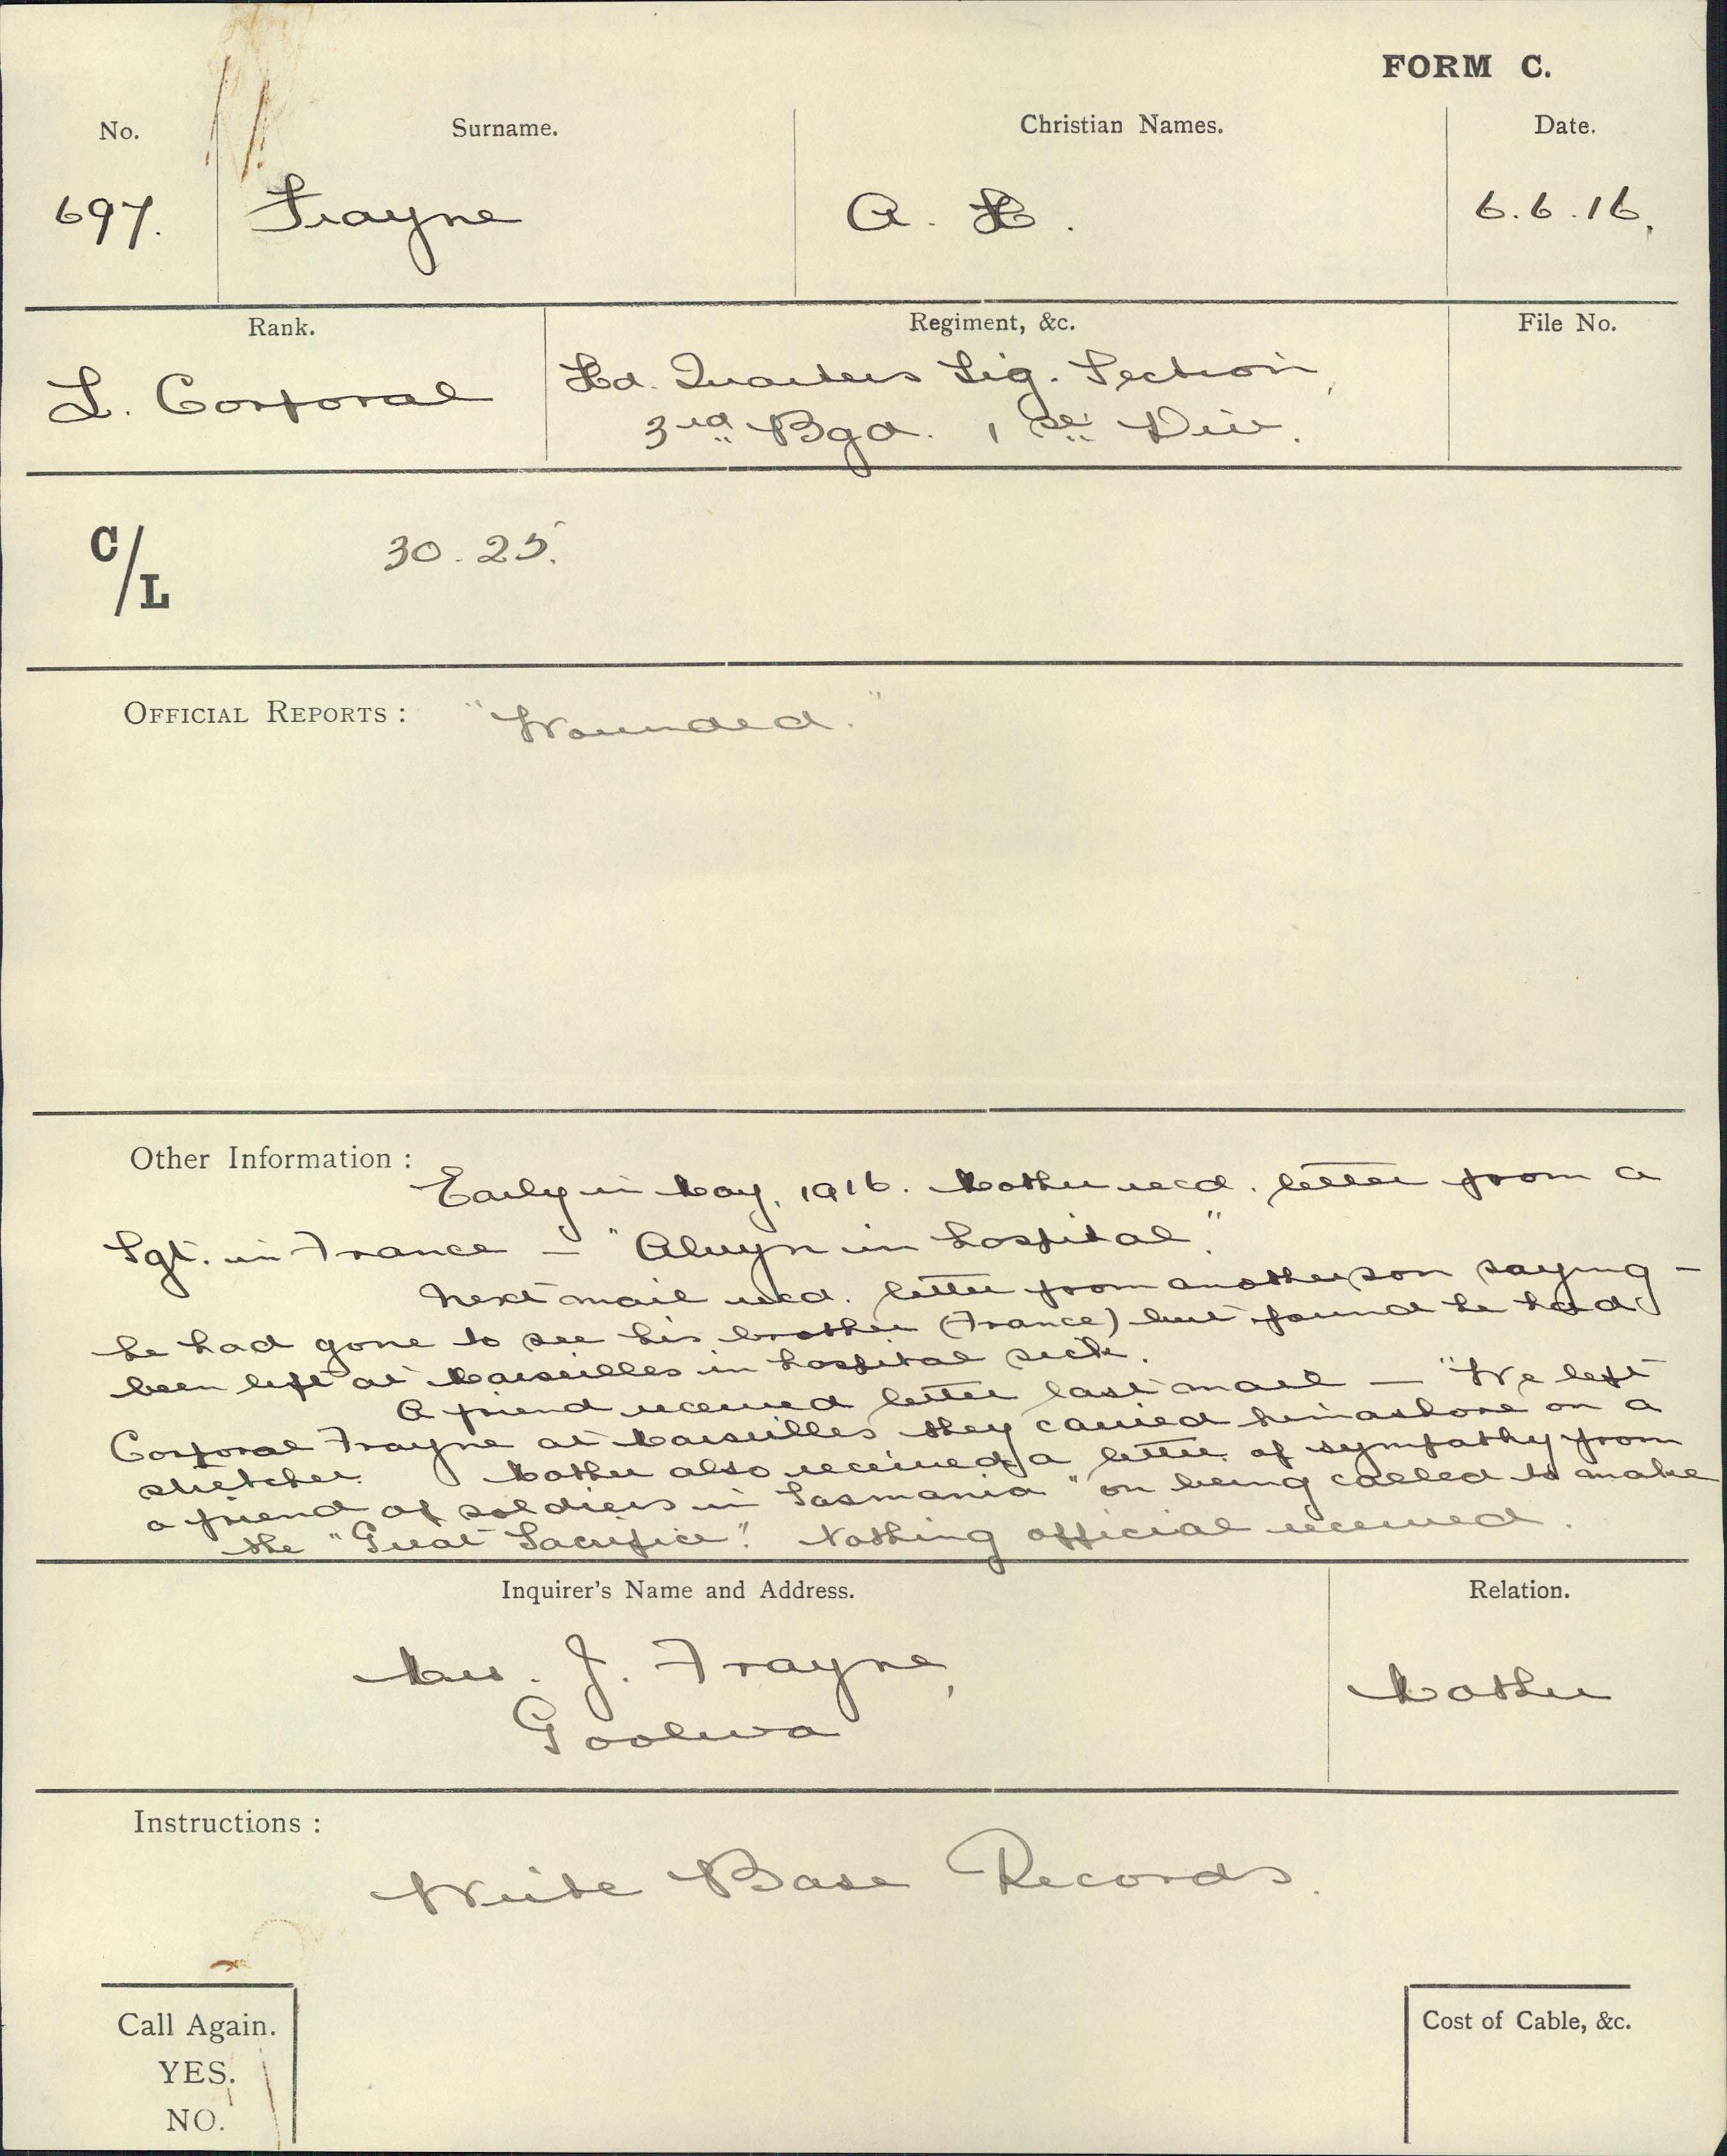 FORM C.
No. Surname. Christian Names. Date.
697. Frayne A. H. 6.6.16.
Rank. Regiment, &c. File No.
L. Corporal Hd. Quarters Sig. Section,
3rd Bgd. 1st Div.
C/L 30.25.
OFFICIAL REPORTS : "Wounded."
Other Information :
Early in May, 1916. Mother recd. letter from a
Sgt. in France — "Alwyn in hospital."
Next mail recd. letter from another son saying —
he had gone to see his brother (France) but found he had
been left at Marseilles in hospital sick.
A friend received letter last mail — "We left
Corporal Frayne at Marseilles they carried him ashore on a
stretcher. Mother also received a letter of sympathy from
a friend of soldiers in Tasmania "on being called to make
the "Great Sacrifice". Nothing official received.
Inquirer's Name and Address. Relation.
Mrs. J. Frayne,
Goolwa
Mother
Instructions :
Write Base Records.
Call Again.
YES.
NO.
Cost of Cable, &c.